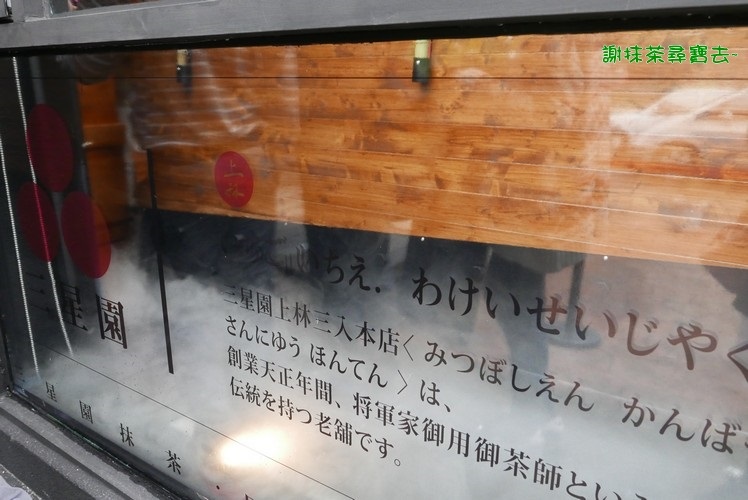 謝抹茶尋寶去~
上
ちえ．わけいせいじゃく
三星園
三星園上林三入本店〈みつぼしえん かんば
さんにゆう ほんてん〉は、
創業天正年間、将軍家御用御茶師とい
伝統を持つ老舗です。
星園抹茶・